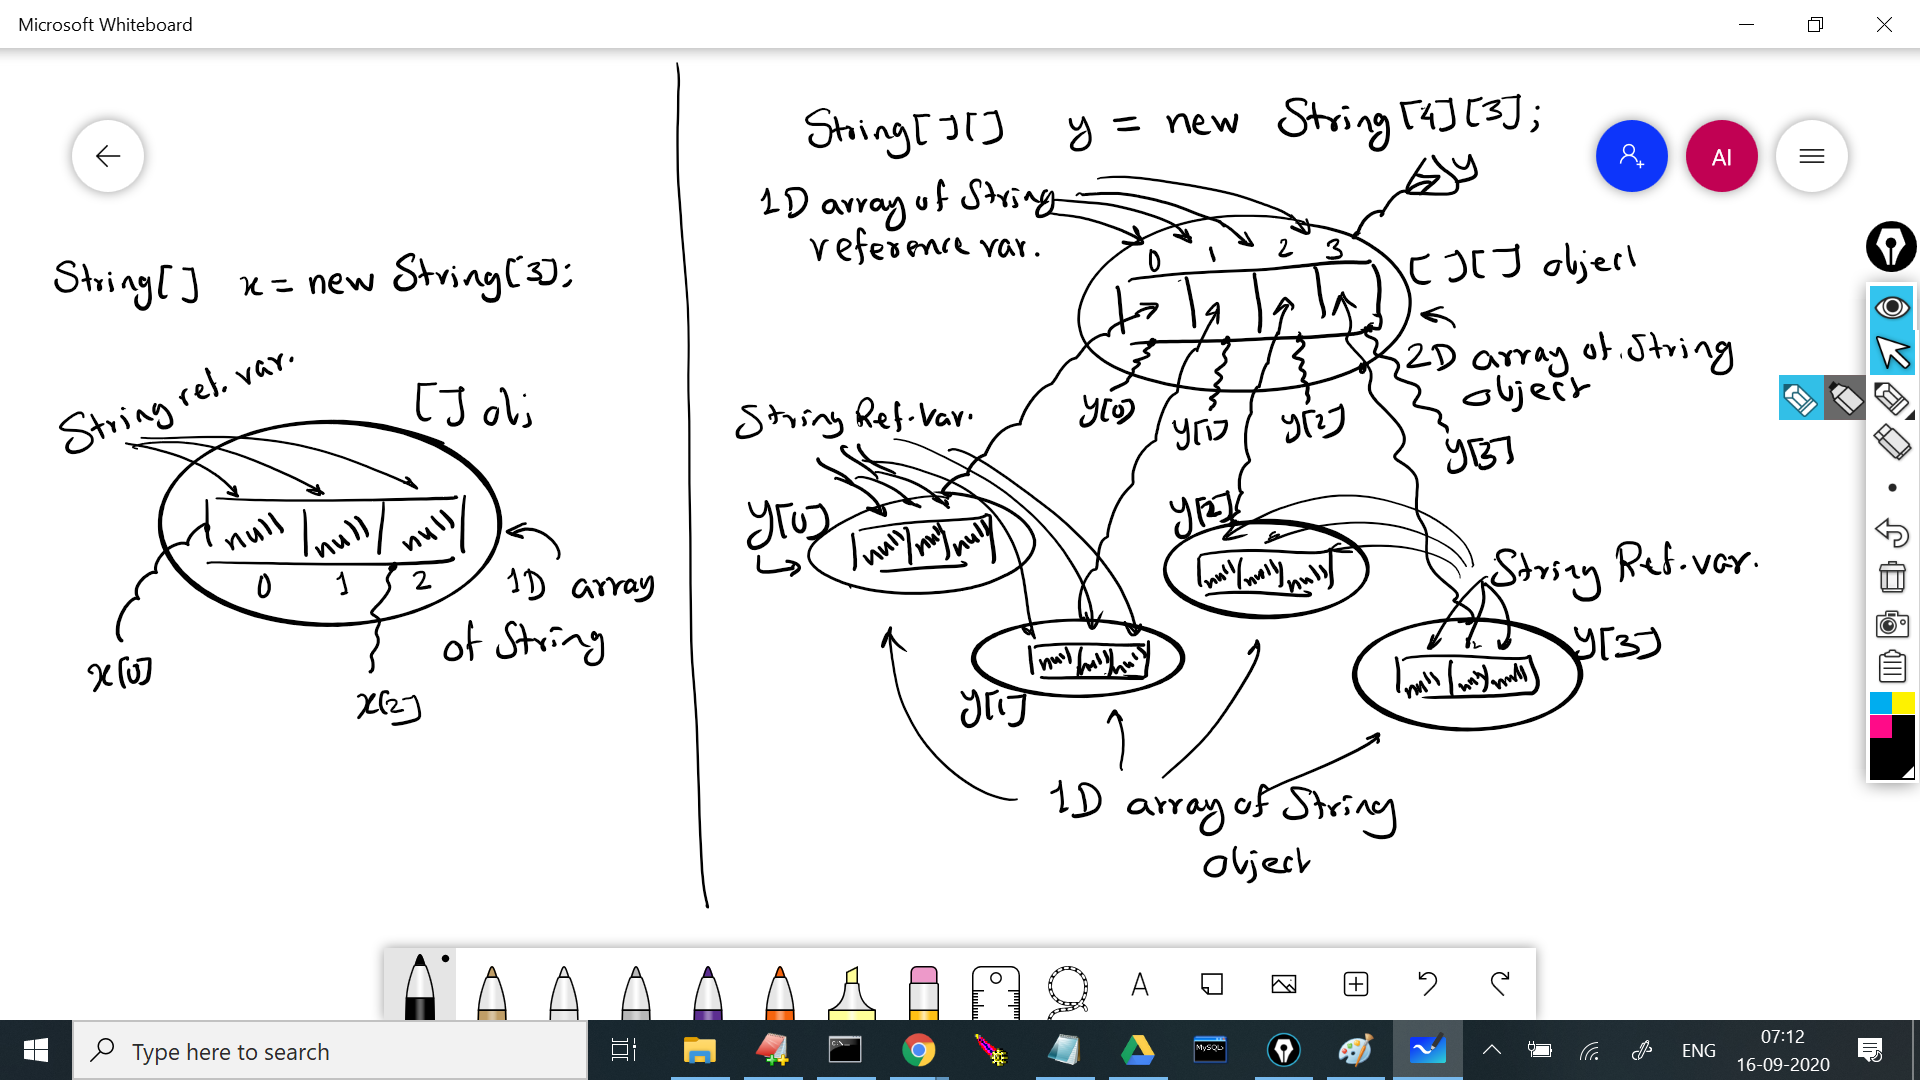 Microsoft Whiteboard
String[] x = new String[3];
String ref. var.
[] obj
null null null
0 1 2
1D array
of String
x[0]
x[2]
String[][] y = new String[4][3];
y
1D array of String
reference var.
0 1 2 3
[][] object
2D array of String
object
y[0] y[1] y[2] y[3]
String Ref. var.
y[0]
null null null
y[2]
null null null
String Ref. var.
y[1]
null null null
y[3]
null null null
1D array of String
object
AI
A
Type here to search
C:\
MySQL
ENG
07:12
16-09-2020